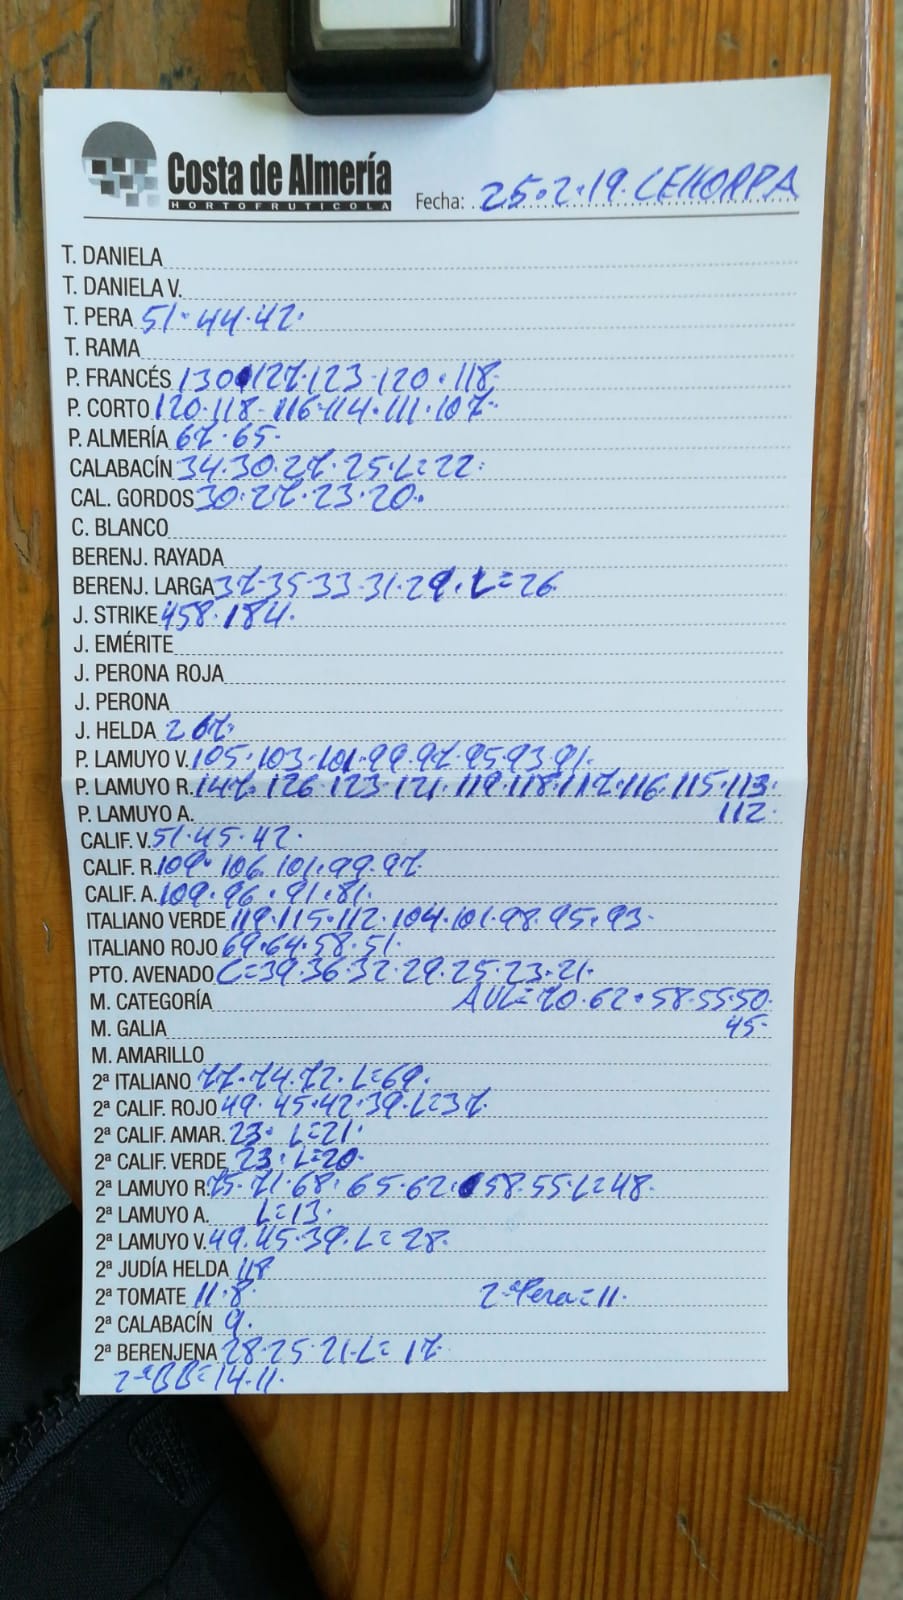 Costa de Almería
HORTOFRUTICOLA
Fecha: 25.2.19. CEHORPA
T. DANIELA
T. DANIELA V.
T. PERA 51.44.42.
T. RAMA
P. FRANCÉS 130.127.123.120.118.
P. CORTO 120.118.116.114.111.107.
P. ALMERÍA 67.65.
CALABACÍN 34.30.27.25.L=22.
CAL. GORDOS 30.27.23.20.
C. BLANCO
BERENJ. RAYADA
BERENJ. LARGA 37.35.33.31.29.L=26
J. STRIKE 458.184.
J. EMÉRITE
J. PERONA ROJA
J. PERONA
J. HELDA 267.
P. LAMUYO V. 105.103.101.99.97.95.93.91.
P. LAMUYO R. 147.126.123.121.119.118.117.116.115.113.
P. LAMUYO A. 112.
CALIF. V. 51.45.42.
CALIF. R. 109.106.101.99.97.
CALIF. A. 109.96.91.81.
ITALIANO VERDE 119.115.112.104.101.98.95.93.
ITALIANO ROJO 69.64.58.51.
PTO. AVENADO C=39.36.32.29.25.23.21.
M. CATEGORÍA =70.62.58.55.50.
M. GALIA 45.
M. AMARILLO
2ª ITALIANO 77.74.72.L=69.
2ª CALIF. ROJO 49.45.42.39.L=37.
2ª CALIF. AMAR. 23. L=21.
2ª CALIF. VERDE 23.L=20.
2ª LAMUYO R. 75.71.68.65.62.58.55.L=48.
2ª LAMUYO A. L=13.
2ª LAMUYO V. 49.45.39.L=28.
2ª JUDÍA HELDA 118
2ª TOMATE 11.8. 2ªPera=11.
2ª CALABACÍN 9.
2ª BERENJENA 28.25.21.L=17.
2ªBB=14.11.